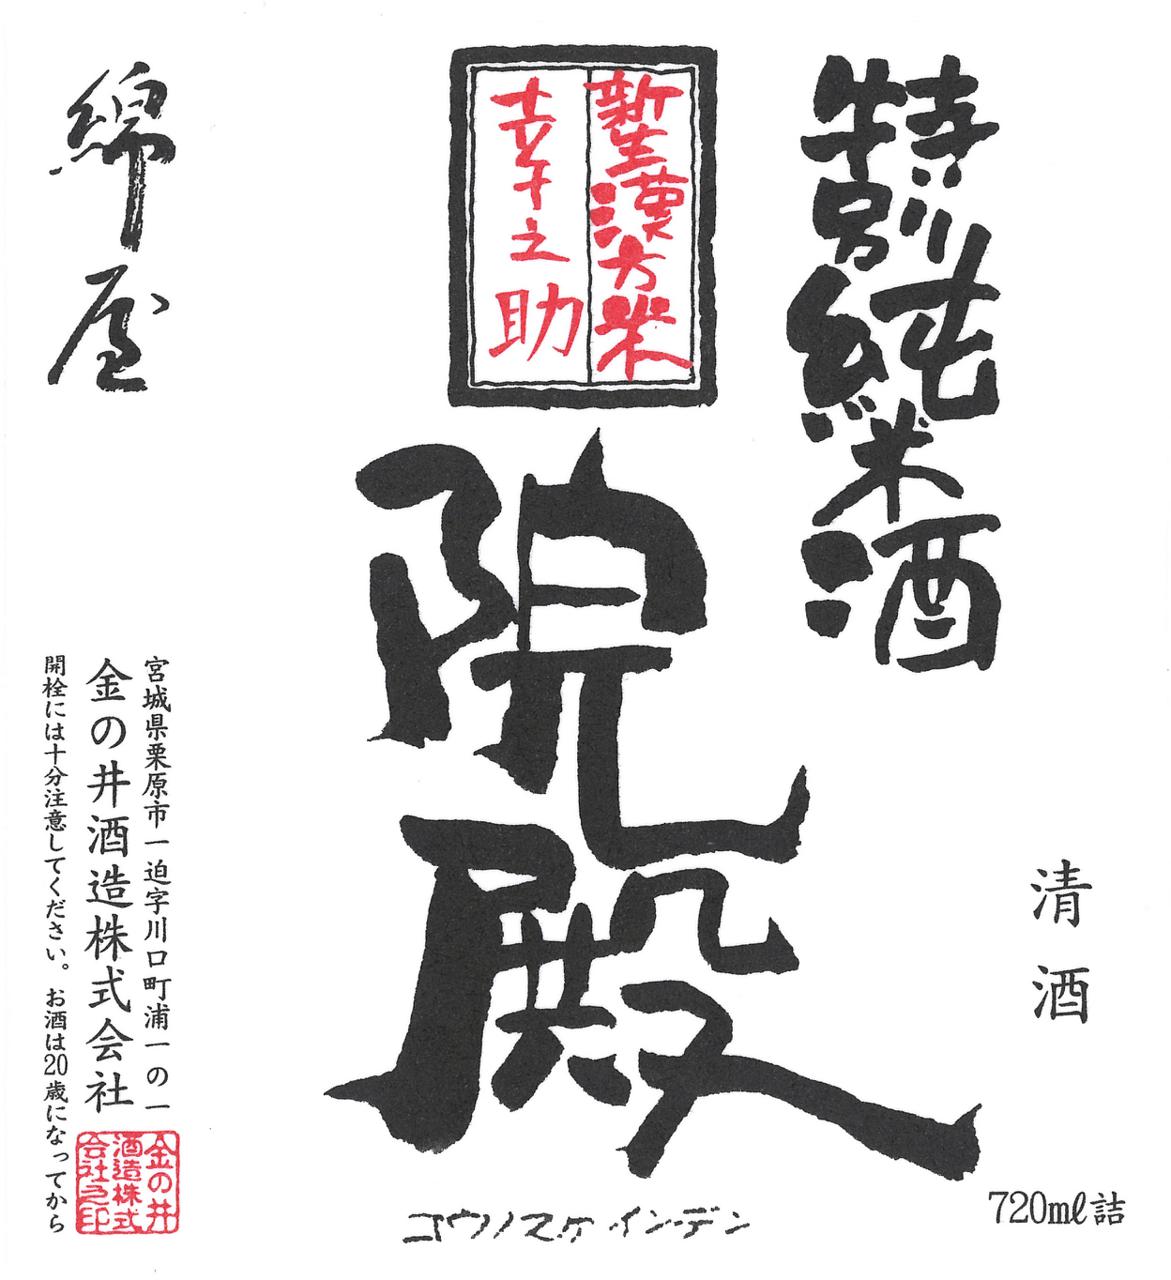 清酒
720mℓ詰
特別純米酒
新生漢方米
幸之助
院殿
コウノスケ インデン
綿屋
宮城県栗原市一迫字川口町浦一の一
金の井酒造株式会社
開栓には十分注意してください。お酒は20歳になってから
金の井
酒造株式
会社之印